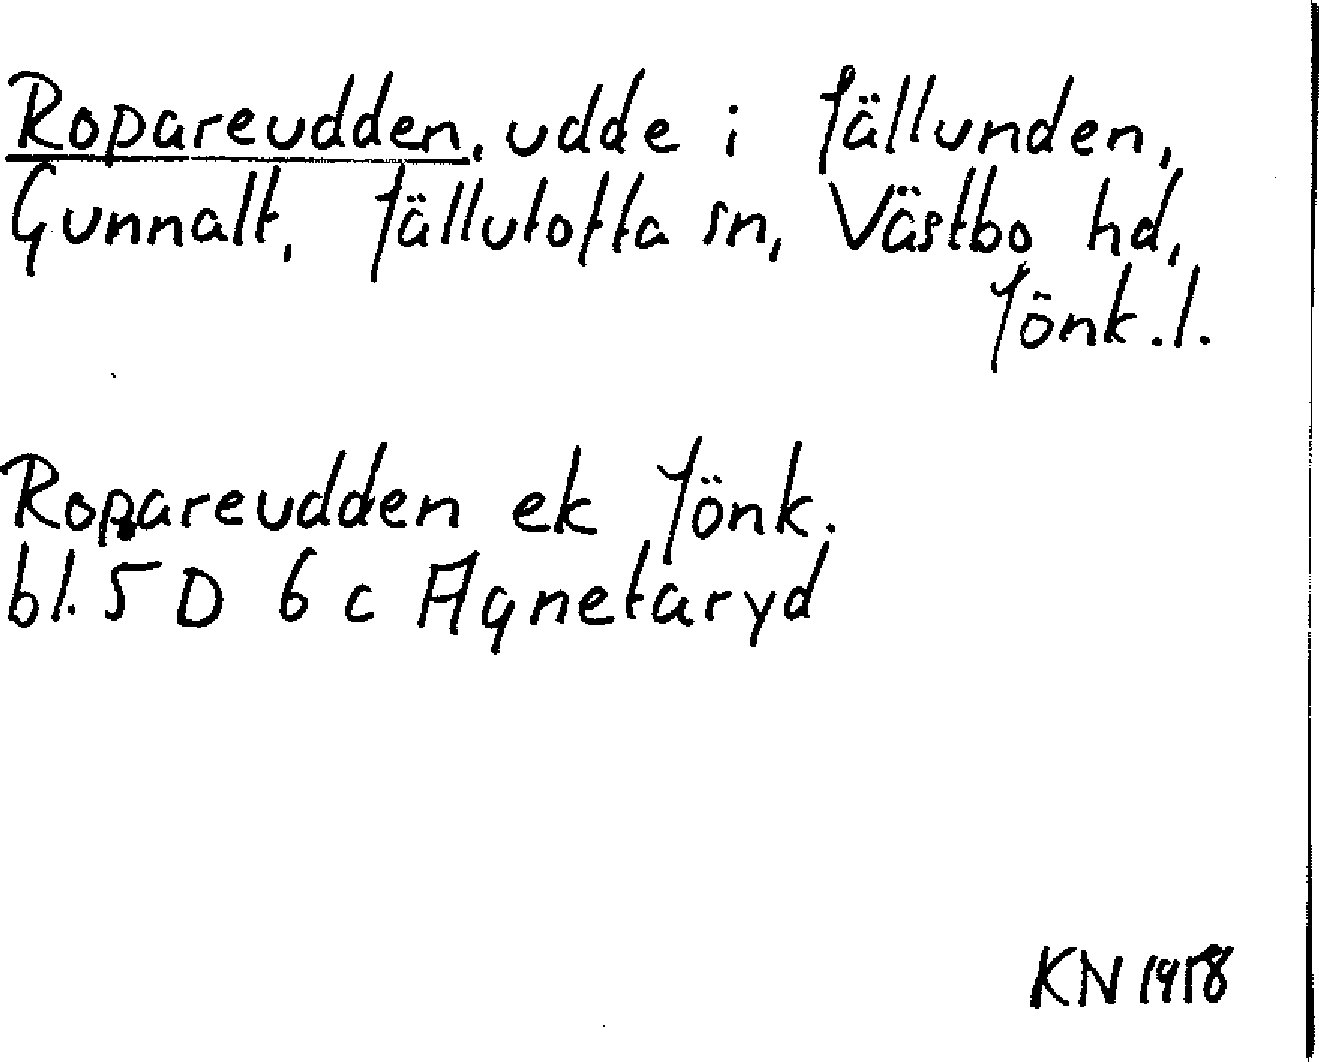 Ropareudden, udde i Jällunden,
Gunnalt, Jällutofta sn, Västbo hd,
Jönk. l.
Ropareudden ek Jönk.
bl. 5 D 6 c Agnetaryd
KN 1958